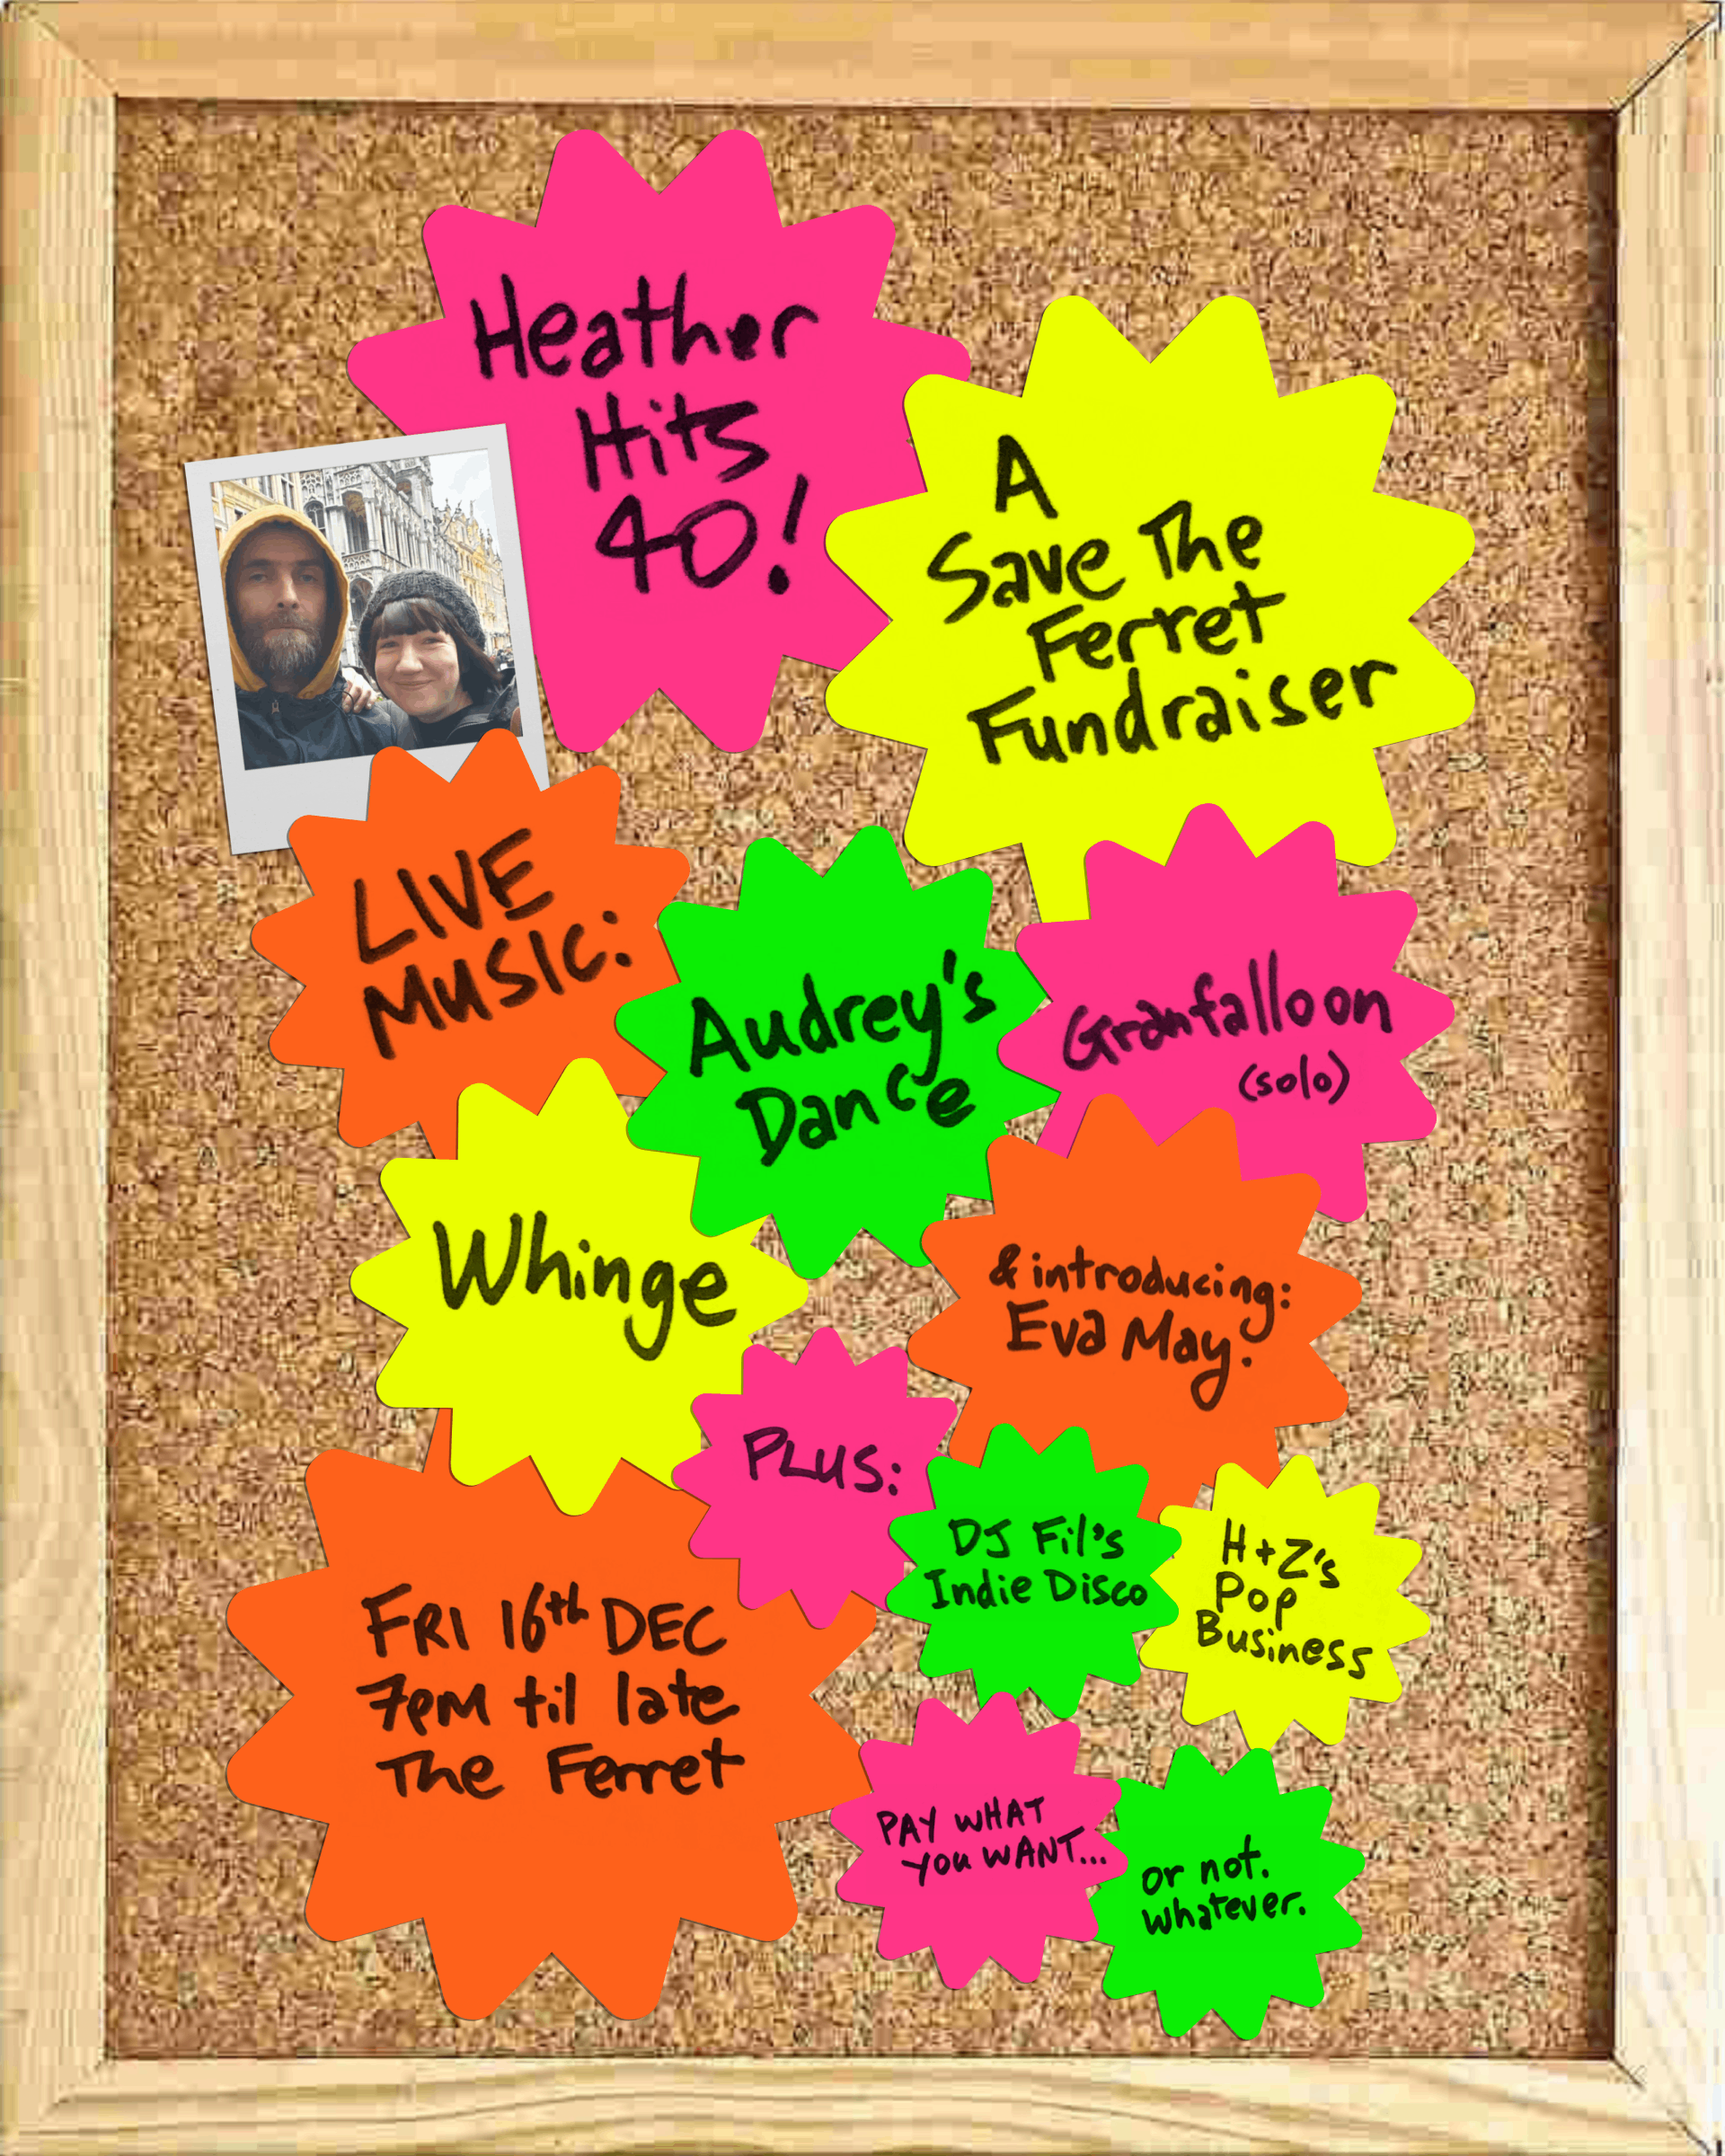 Heather
Hits
40!
A
Save The
Ferret
Fundraiser
LIVE
MUSIC:
Audrey's
Dance
Granfalloon
(solo)
Whinge
& introducing:
Eva May.
PLUS:
DJ Fil's
Indie Disco
H+Z's
Pop
Business
FRI 16th DEC
7PM til late
The Ferret
PAY WHAT
YOU WANT...
or not.
whatever.